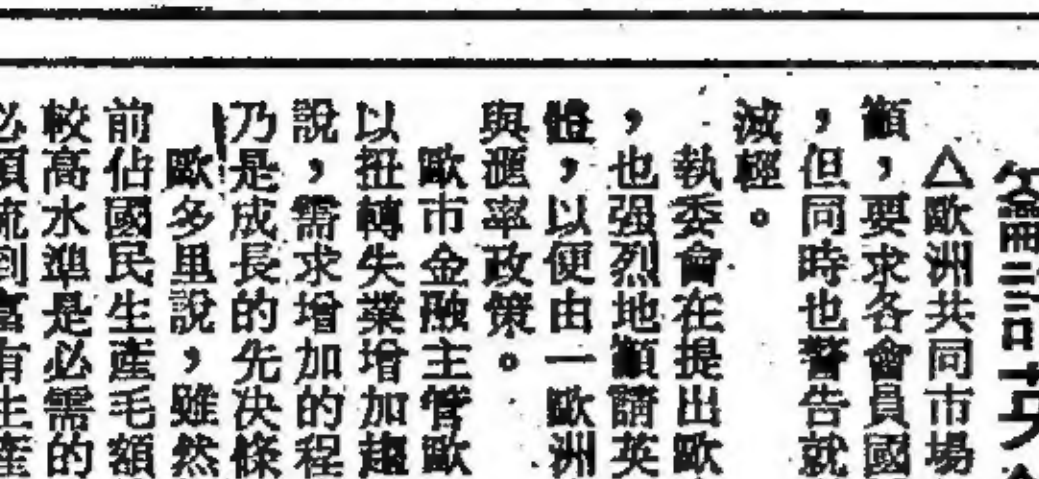 籲請英
△歐洲共同市場
籲，要求各會員國
，但同時也警告就
減輕。
執委會在提出歐
，也强烈地籲請英
，以便由一歐洲
與匯率政策。
歐市金融主管歐
以扭轉失業增加趨
說，需求增加的程
乃是成長的先决條
歐多里說，雖然
前佔國民生產毛額
較高水準是必需的
必須流到富有生產